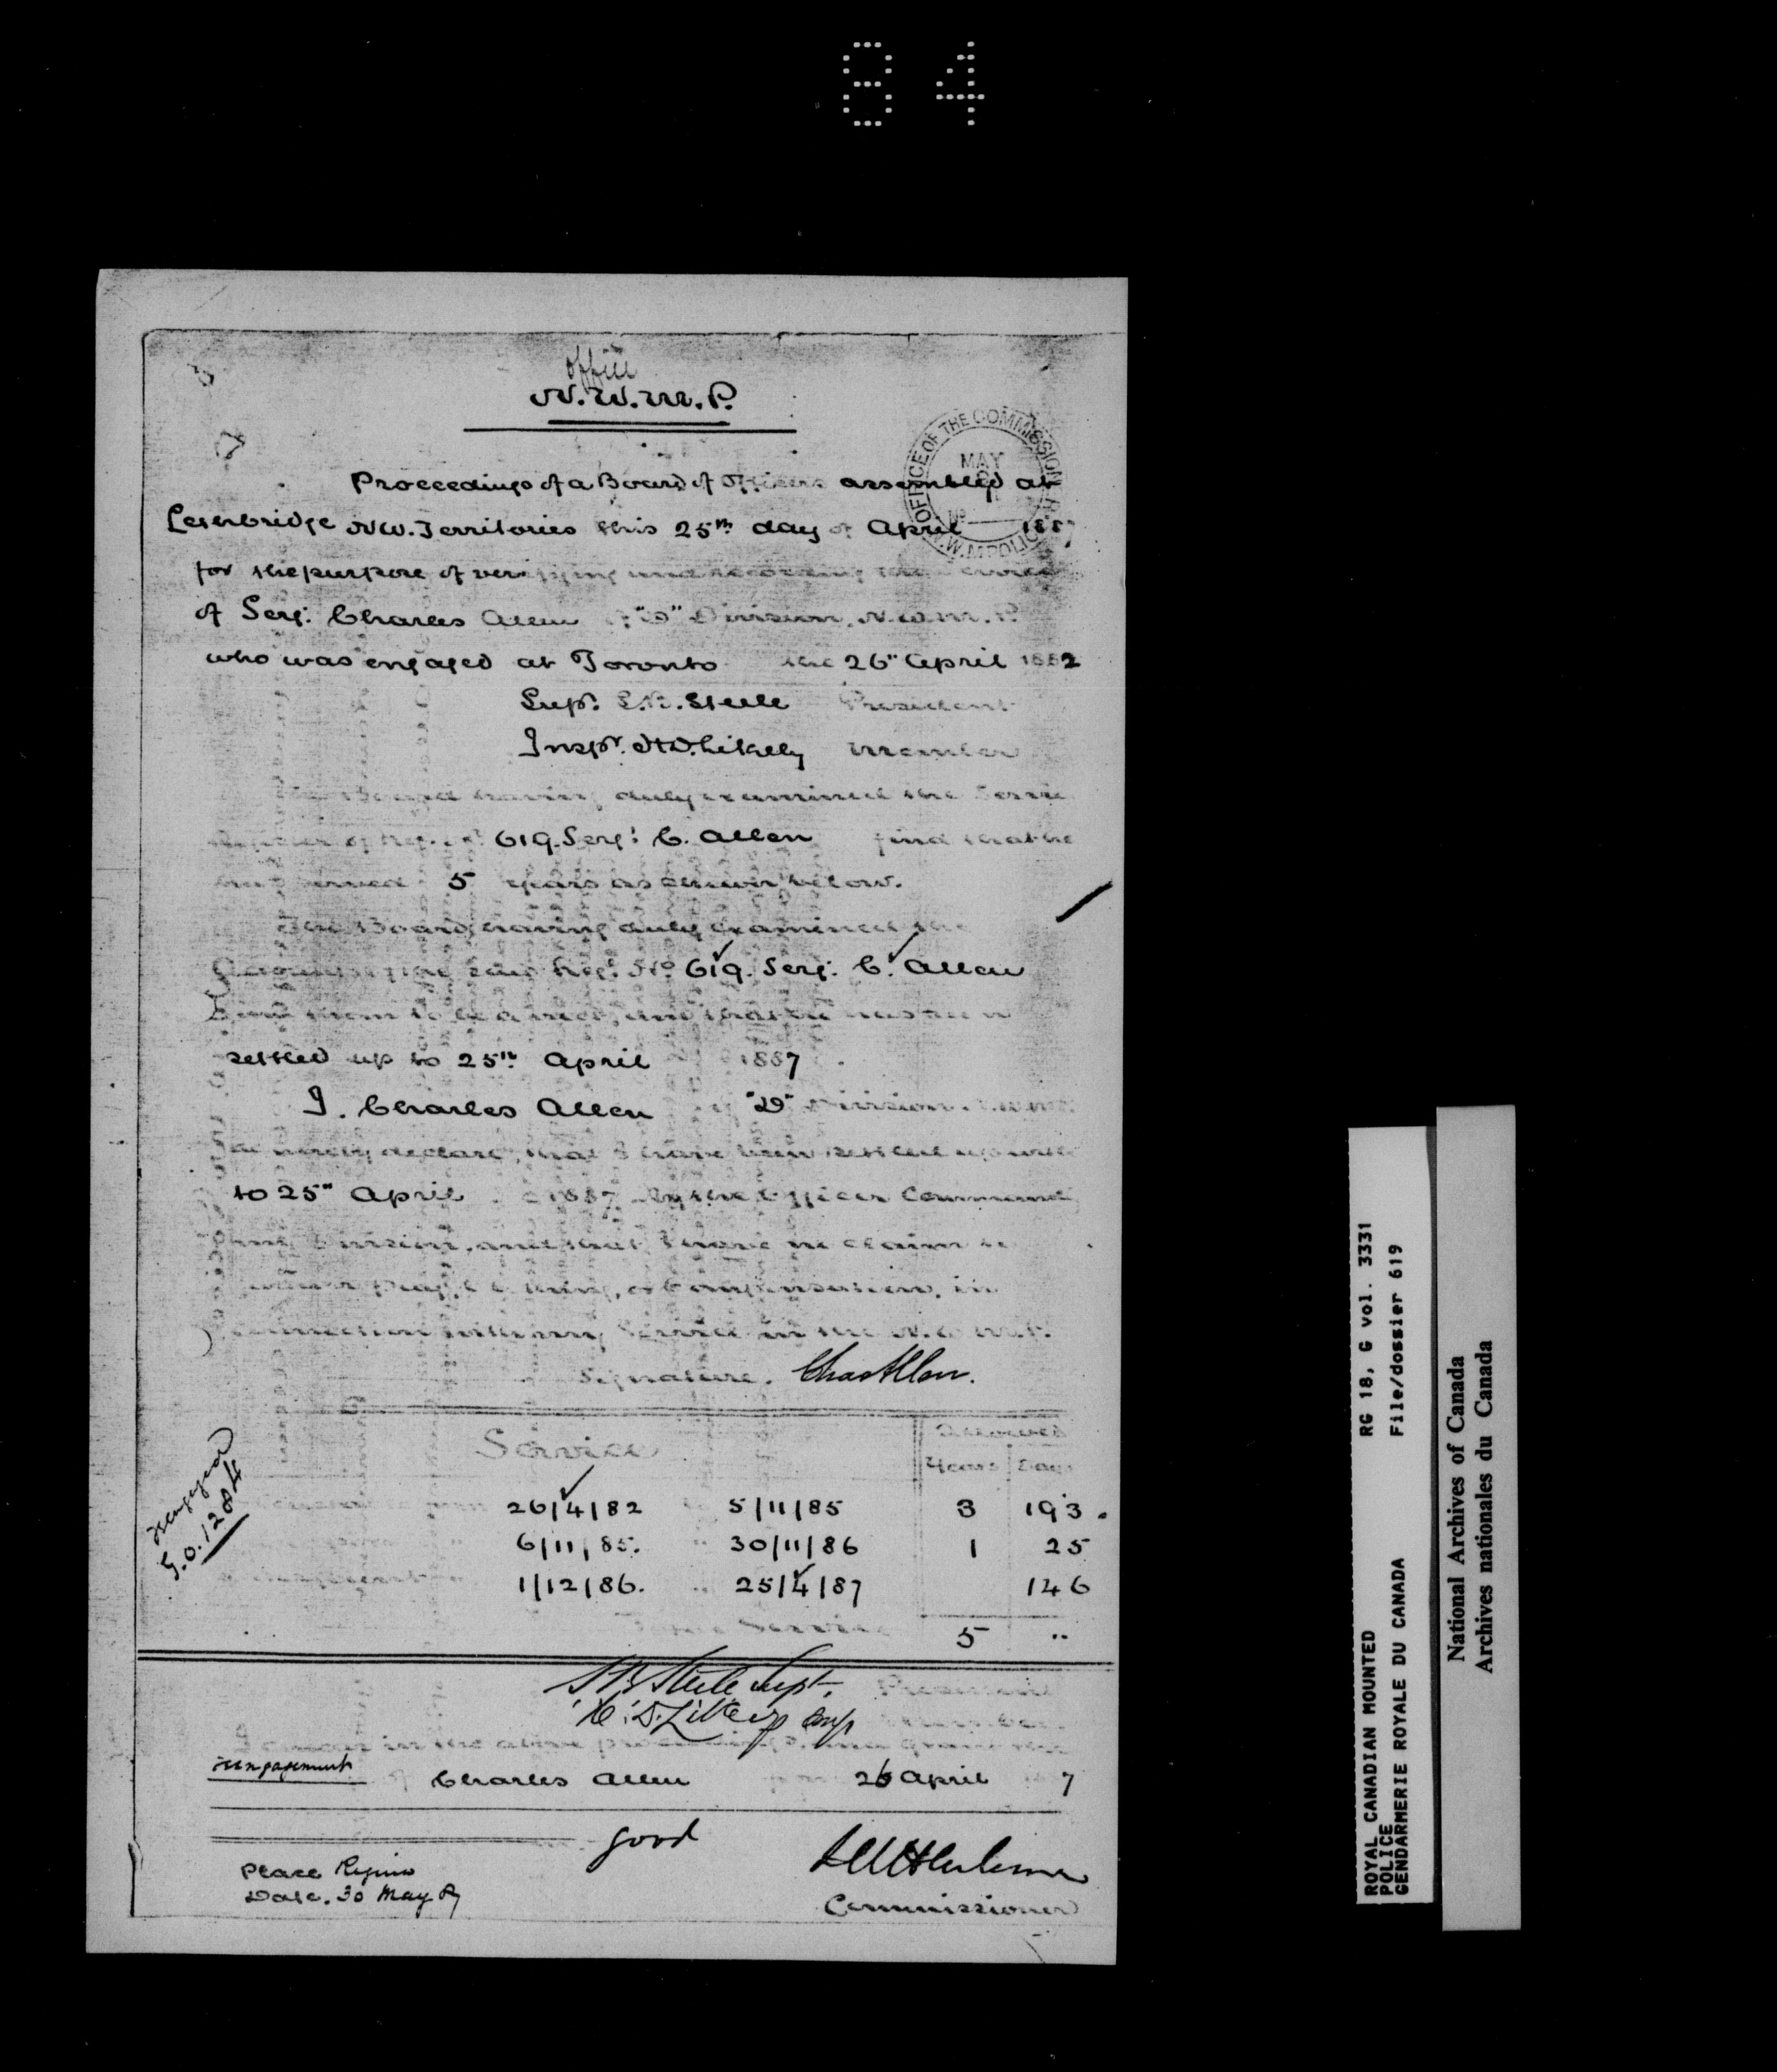 84
Office
N.W.M.P.
OFFICE OF THE COMMISSIONER
MAY
No
N.W.M. POLICE
Proceedings of a Board of Officers assembled at
Lethbridge N.W. Territories this 25th day of April 1887
for the purpose of verifying and recording the service
of Serg: Charles Allen of "D" Division, N.W.M.P.
who was engaged at Toronto the 26" April 1882
Supt. S.B. Steele President
Inspr. Member
The Board having duly examined the Service
of Reg. No. 619. Serg: C. Allen find that he
has served 5 years as shown below.
The Board, having duly examined the
Accounts of the said Reg: No 619. Serg: C. Allen
find them to be correct, and that he has been
settled up to 25th April 1887
I. Charles Allen of "D" Division. N.W.M.P.
do hereby declare, that I have been settled up with
to 25" April 1887 by the Officer Commanding
Division, and that I have no claim to
further pay, clothing, or compensation, in
connection with my service in the N.W.M.P.
Signature. Chas Allen.
Service
Allowed
Years Days
26/4/82 5/11/85 3 193.
6/11/85. " 30/11/86 1 25
1/12/86. " 25/4/87 146
Total Service 5 "
reengaged
G.O. 1284
S B Steele Supt. President
Insp Member
I concur in the above proceedings, and grant the
reengagement of Charles Allen 26 April 7
good
Place Regina
Date. 30 May 87
Commissioner
ROYAL CANADIAN MOUNTED RG 18, G vol. 3331
POLICE
GENDARMERIE ROYALE DU CANADA File/dossier 619
National Archives of Canada
Archives nationales du Canada